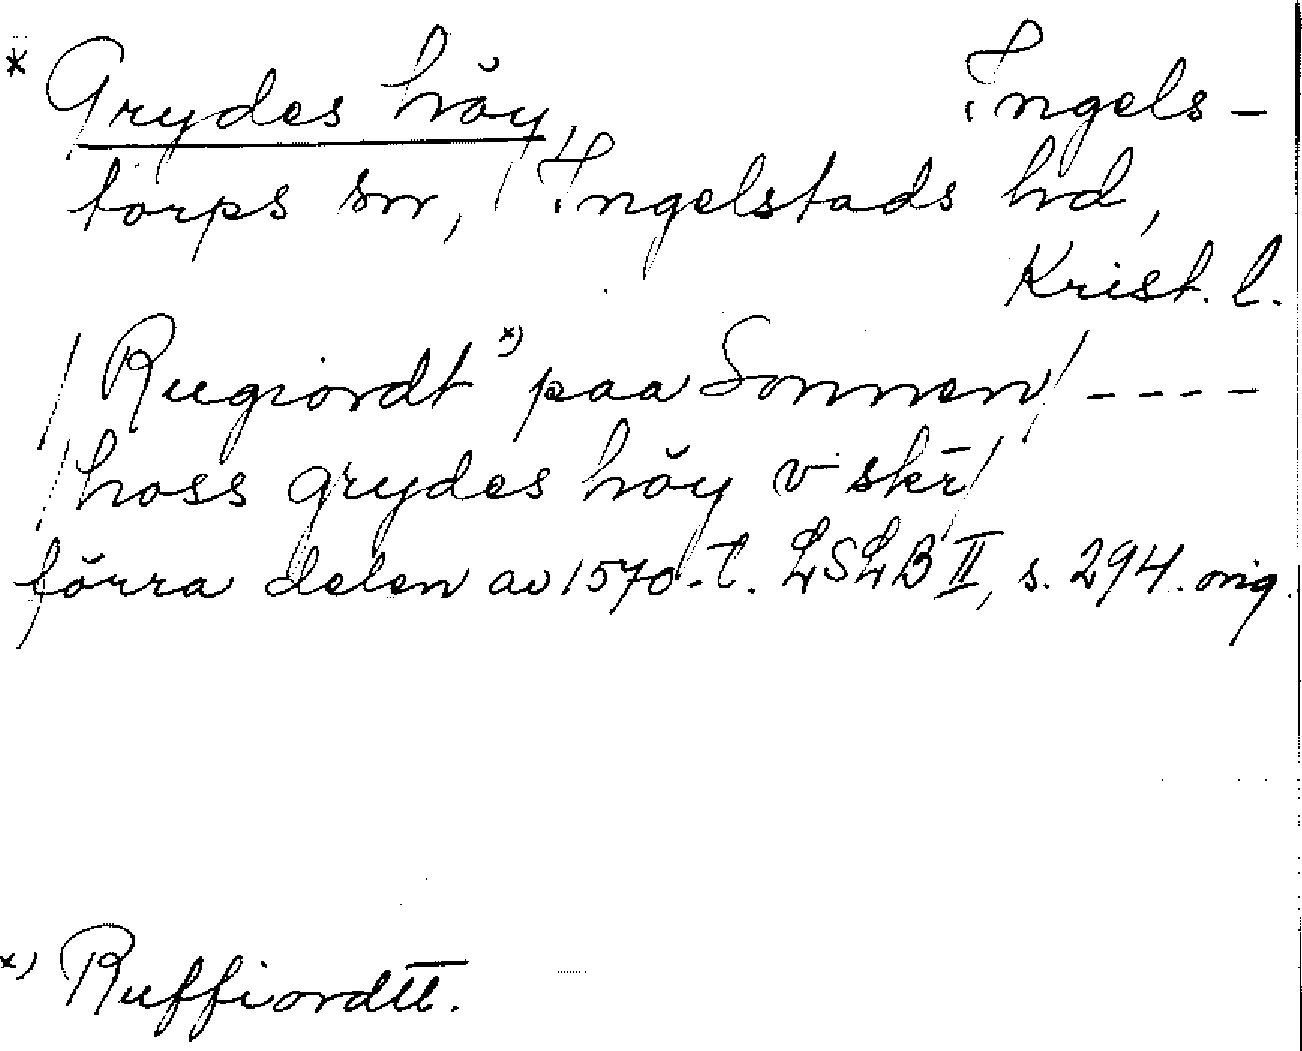 * Grydes höy, Ingels-
torps sn, Ingelstads hd,
Krist. l.
/Rugiordt *) paa Sonnen/ ----
/hoss grydes höy v skr̄/
förra delen av 1570-t. LSLB II, s. 294. orig.
*) Ruffiordtt.